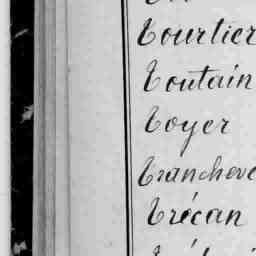 Tourtier
Toutain
Toyer
Tranchove
Trécan